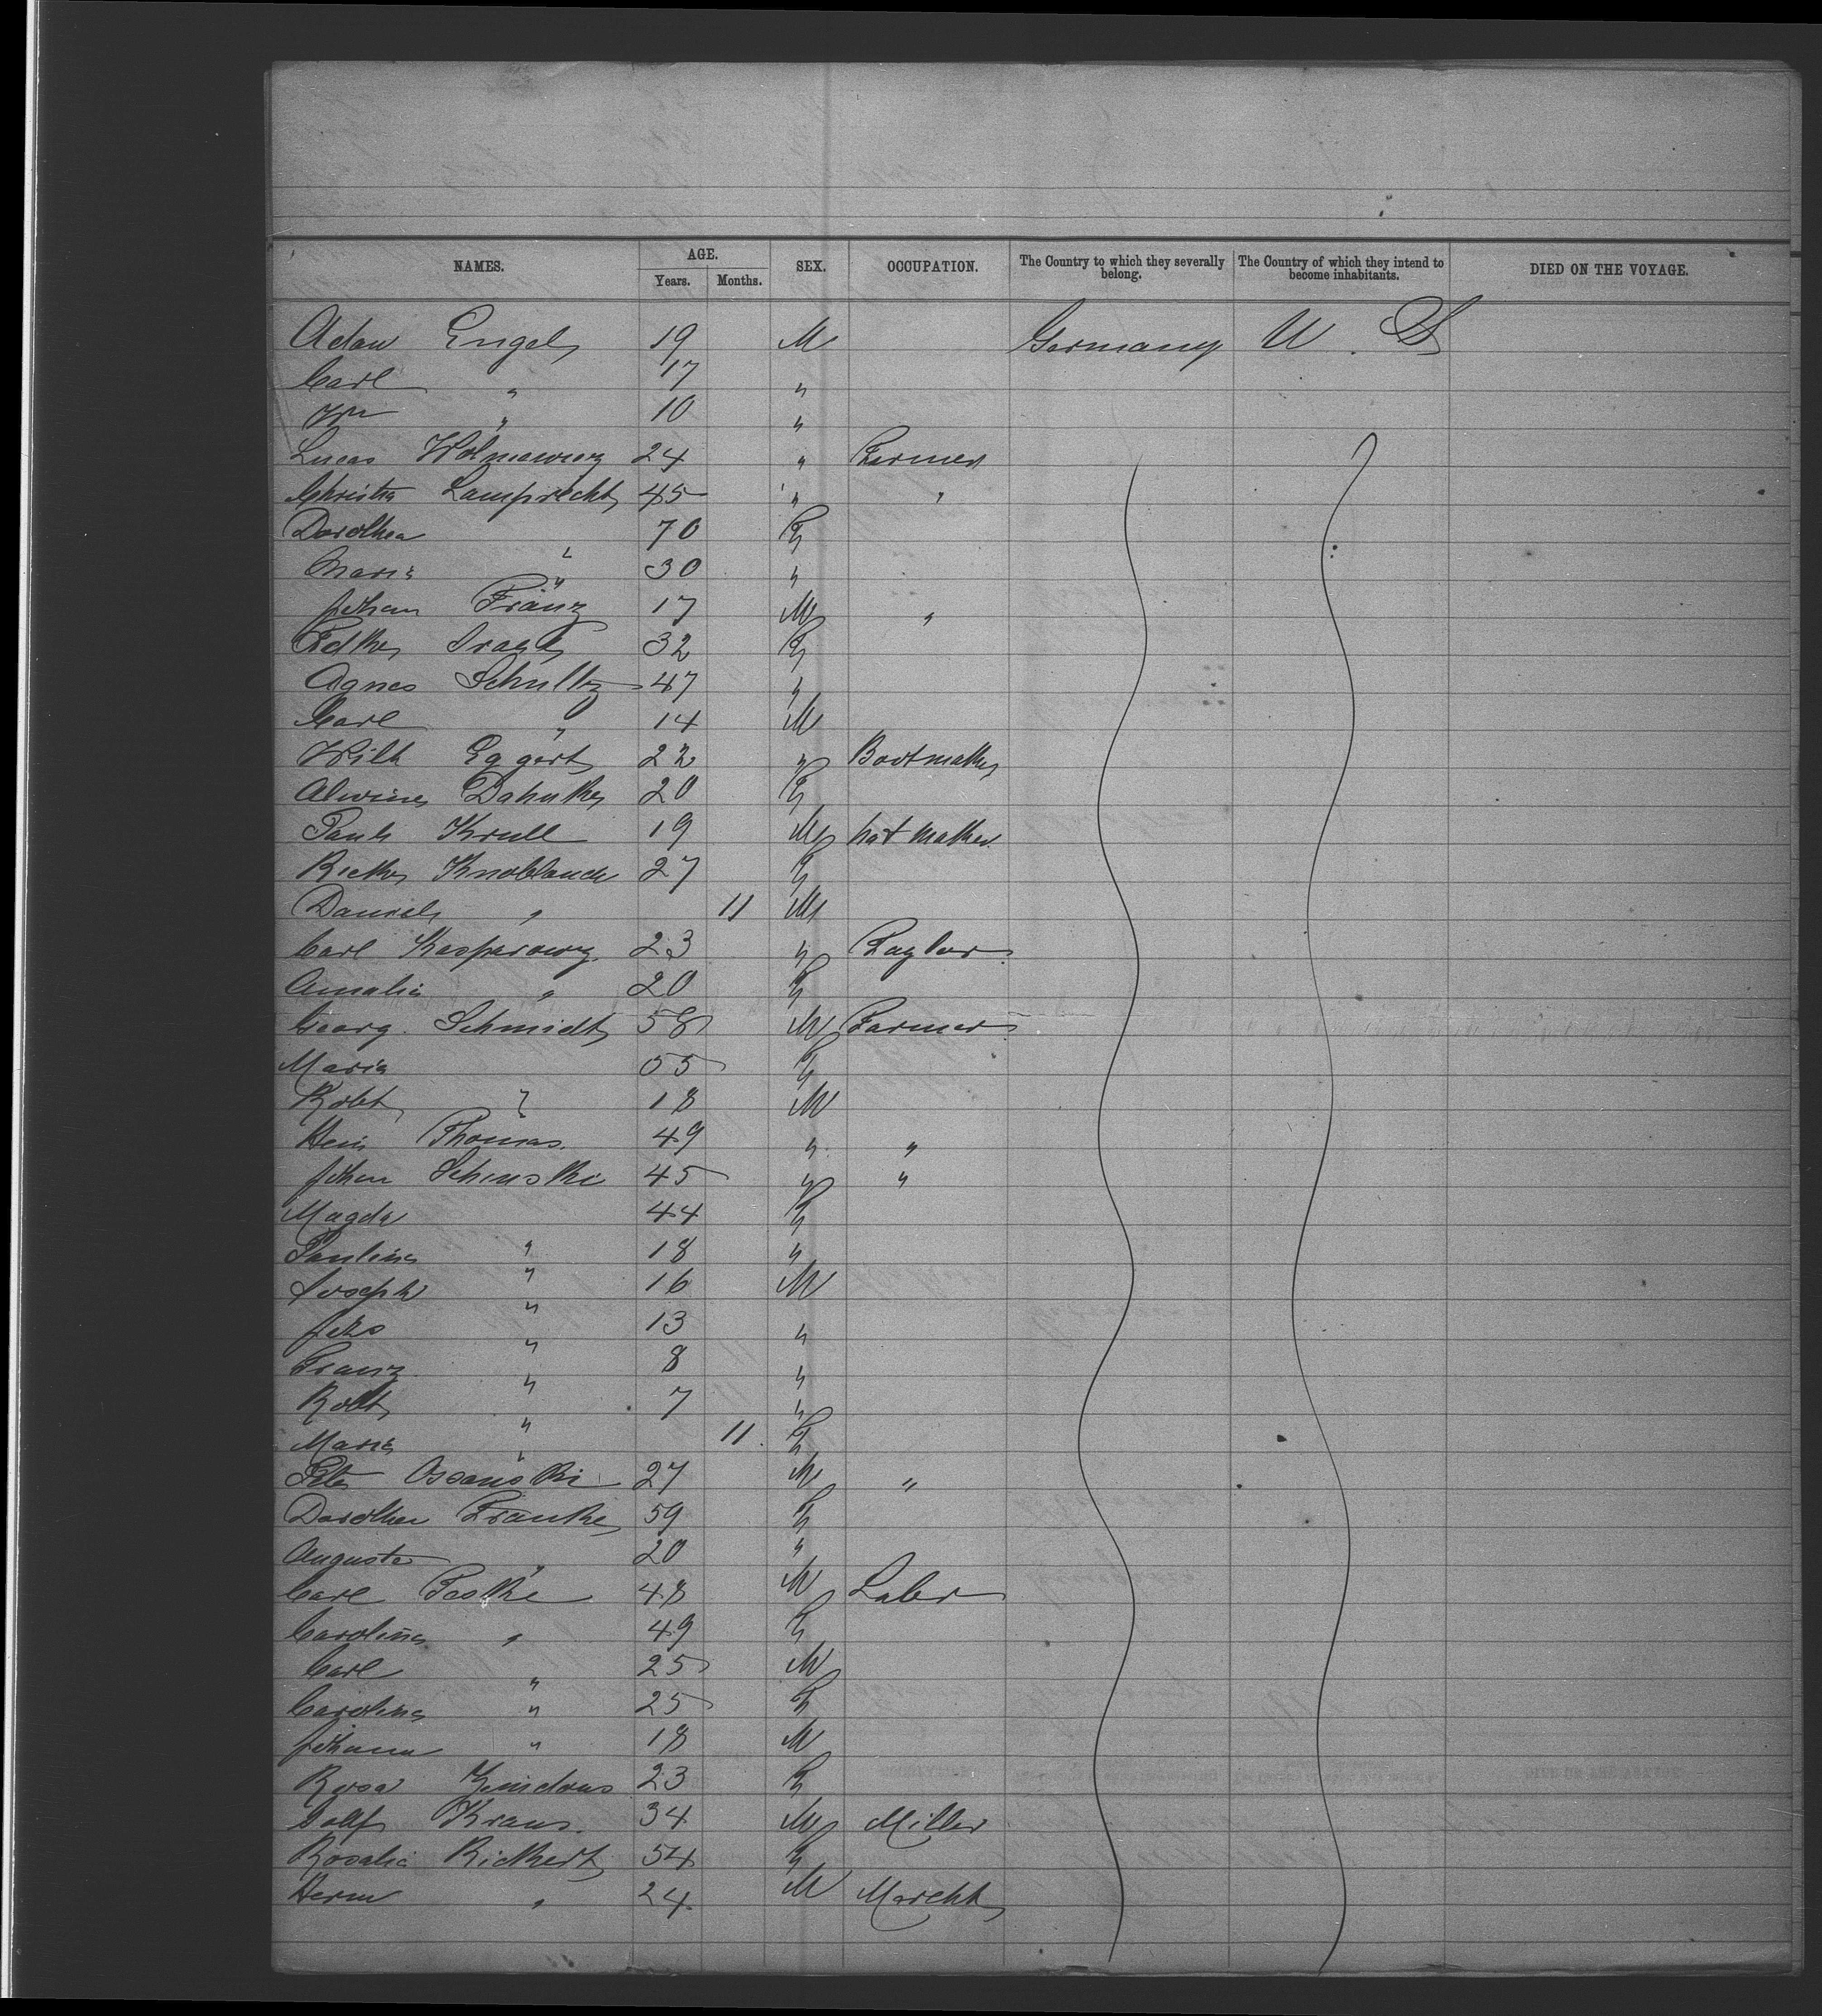 NAMES. AGE. SEX. OCCUPATION. The Country to which they severally belong. The Country of which they intend to become inhabitants. DIED ON THE VOYAGE.
Years. Months.
Adam Engel 19 M Germany U. S
Carl " 17 "
Wm " 10 "
Lucas 24 " Farmer
Christn Lamprecht 45 " "
Dorothea " 70 F
Maria " 30 "
Johan Franz 17 M "
32 F
Agnes Schultz 47 "
Carl " 14 M
Wilh Eggert 22 " Bootmaker
Alwine Dahnke 20 F
Paul Krull 19 M hat maker
Rieke Knoblauch 27 F
Daniel " 11 M
Carl Kasparowz 23 " Taylor
Amalia " 20 F
Georg Schmidt 58 M Farmer
Maria 55 F
Robt " 18 M
Hein Thomas 49 " "
Johan Schinski 45 " "
Magda 44 F
Paulina " 18 "
Joseph " 16 M
Johs " 13 "
Franz " 8 "
Robt " 7 "
Maria " 11 F
Peter Ossanski 27 M "
Dorothea Franke 59 F
Auguste " 20 "
Carl Paske 48 M Labr
Carolina " 49 F
Carl " 25 M
Carolina " 25 F
Johann " 18 M
Rosa 23 F
Kraus 34 M Miller
Rosalie Rickert 54 F
Herm " 24 M Marcht